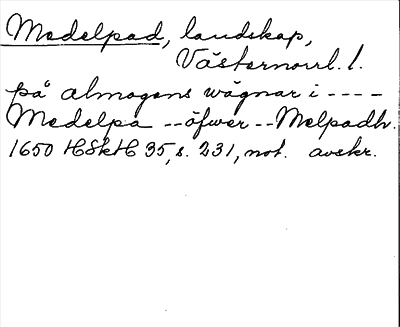 Medelpad, landskap,
Västernorrl. l.
på almogens wägnar i ----
Medelpa --öfwer--Melpadh.
1650 HSkH 35, s. 231, not. avskr.